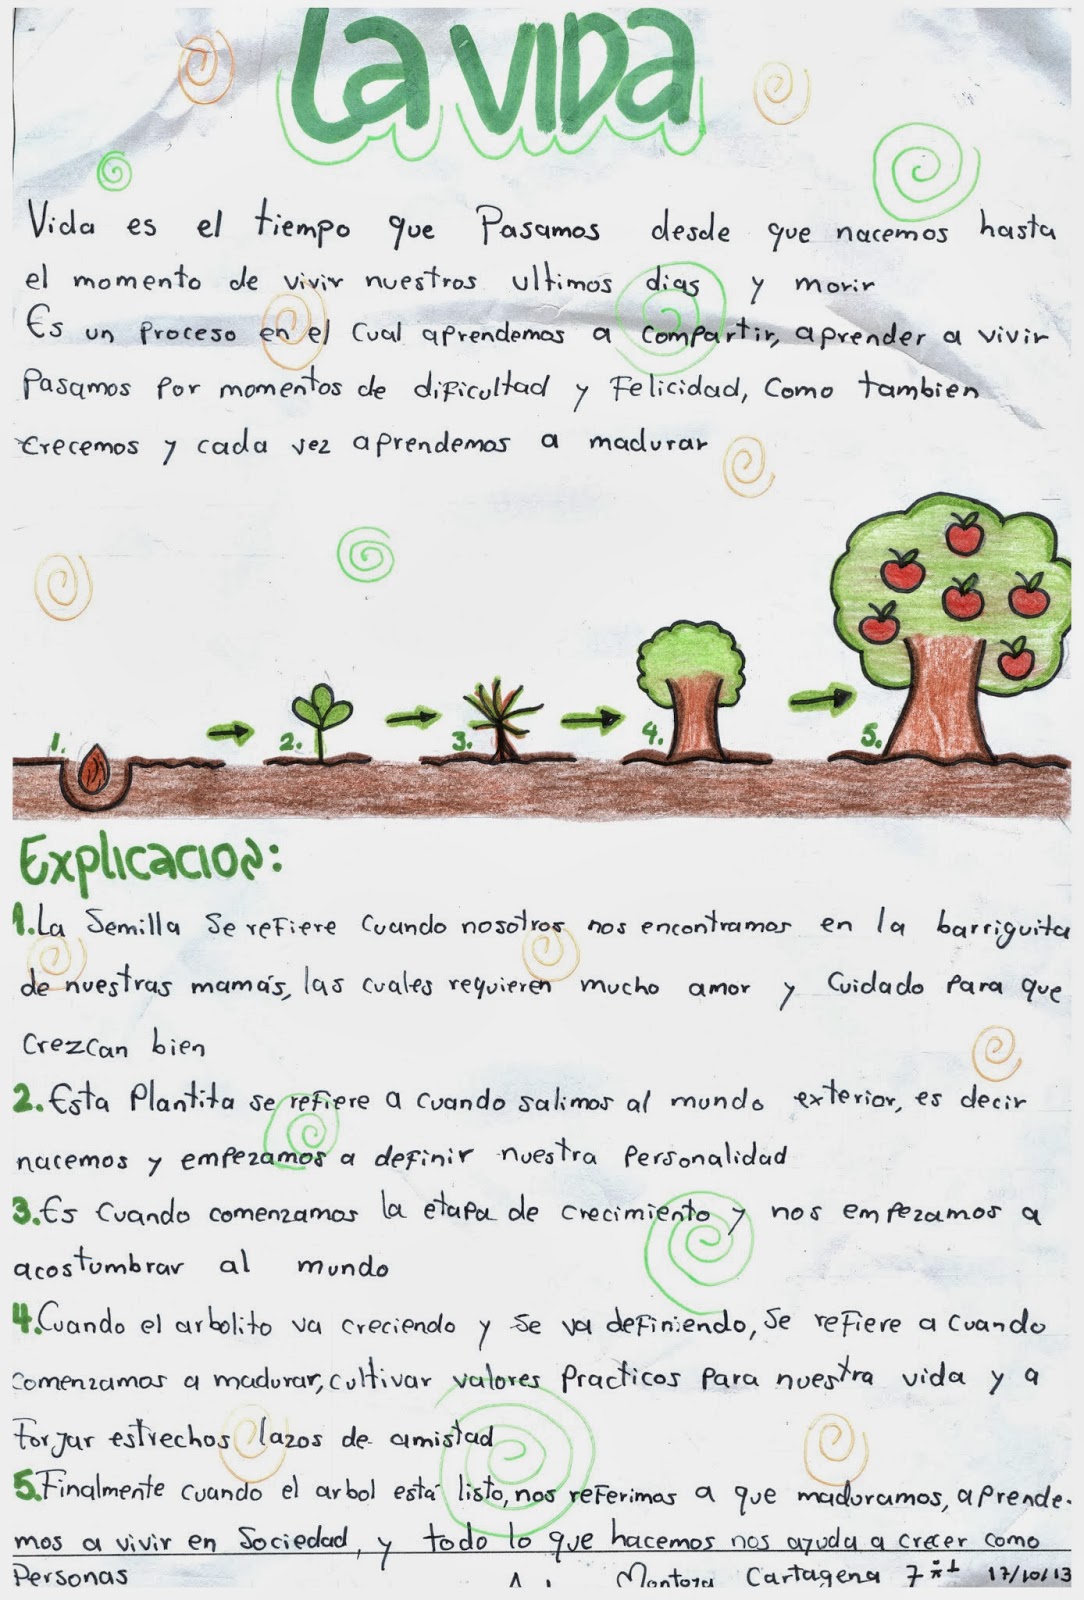 La Vida
Vida es el tiempo que Pasamos desde que nacemos hasta
el momento de vivir nuestros ultimos dias y morir
Es un proceso en el cual aprendemos a compartir, aprender a vivir
Pasamos Por momentos de dificultad y Felicidad, Como tambien
crecemos y cada vez aprendemos a madurar
1.
2.
3.
4.
5.
Explicacion:
1.La Semilla Se refiere Cuando nosotros nos encontramos en la barriguita
de nuestras mamás, las cuales requieren mucho amor y Cuidado Para que
Crezcan bien
2.Esta Plantita se refiere a cuando salimos al mundo exterior, es decir
nacemos y empezamos a definir nuestra Personalidad
3.Es Cuando comenzamos la etapa de crecimiento y nos empezamos a
acostumbrar al mundo
4.Cuando el arbolito va creciendo y Se va definiendo, Se refiere a cuando
comenzamos a madurar, cultivar valores Practicos Para nuestra vida y a
Forjar estrechos lazos de amistad
5.Finalmente cuando el arbol está listo, nos referimos a que maduramos, aprende-
mos a vivir en Sociedad, y todo lo que hacemos nos ayuda a crecer como
Personas
Montoya Cartagena 7 17/10/13